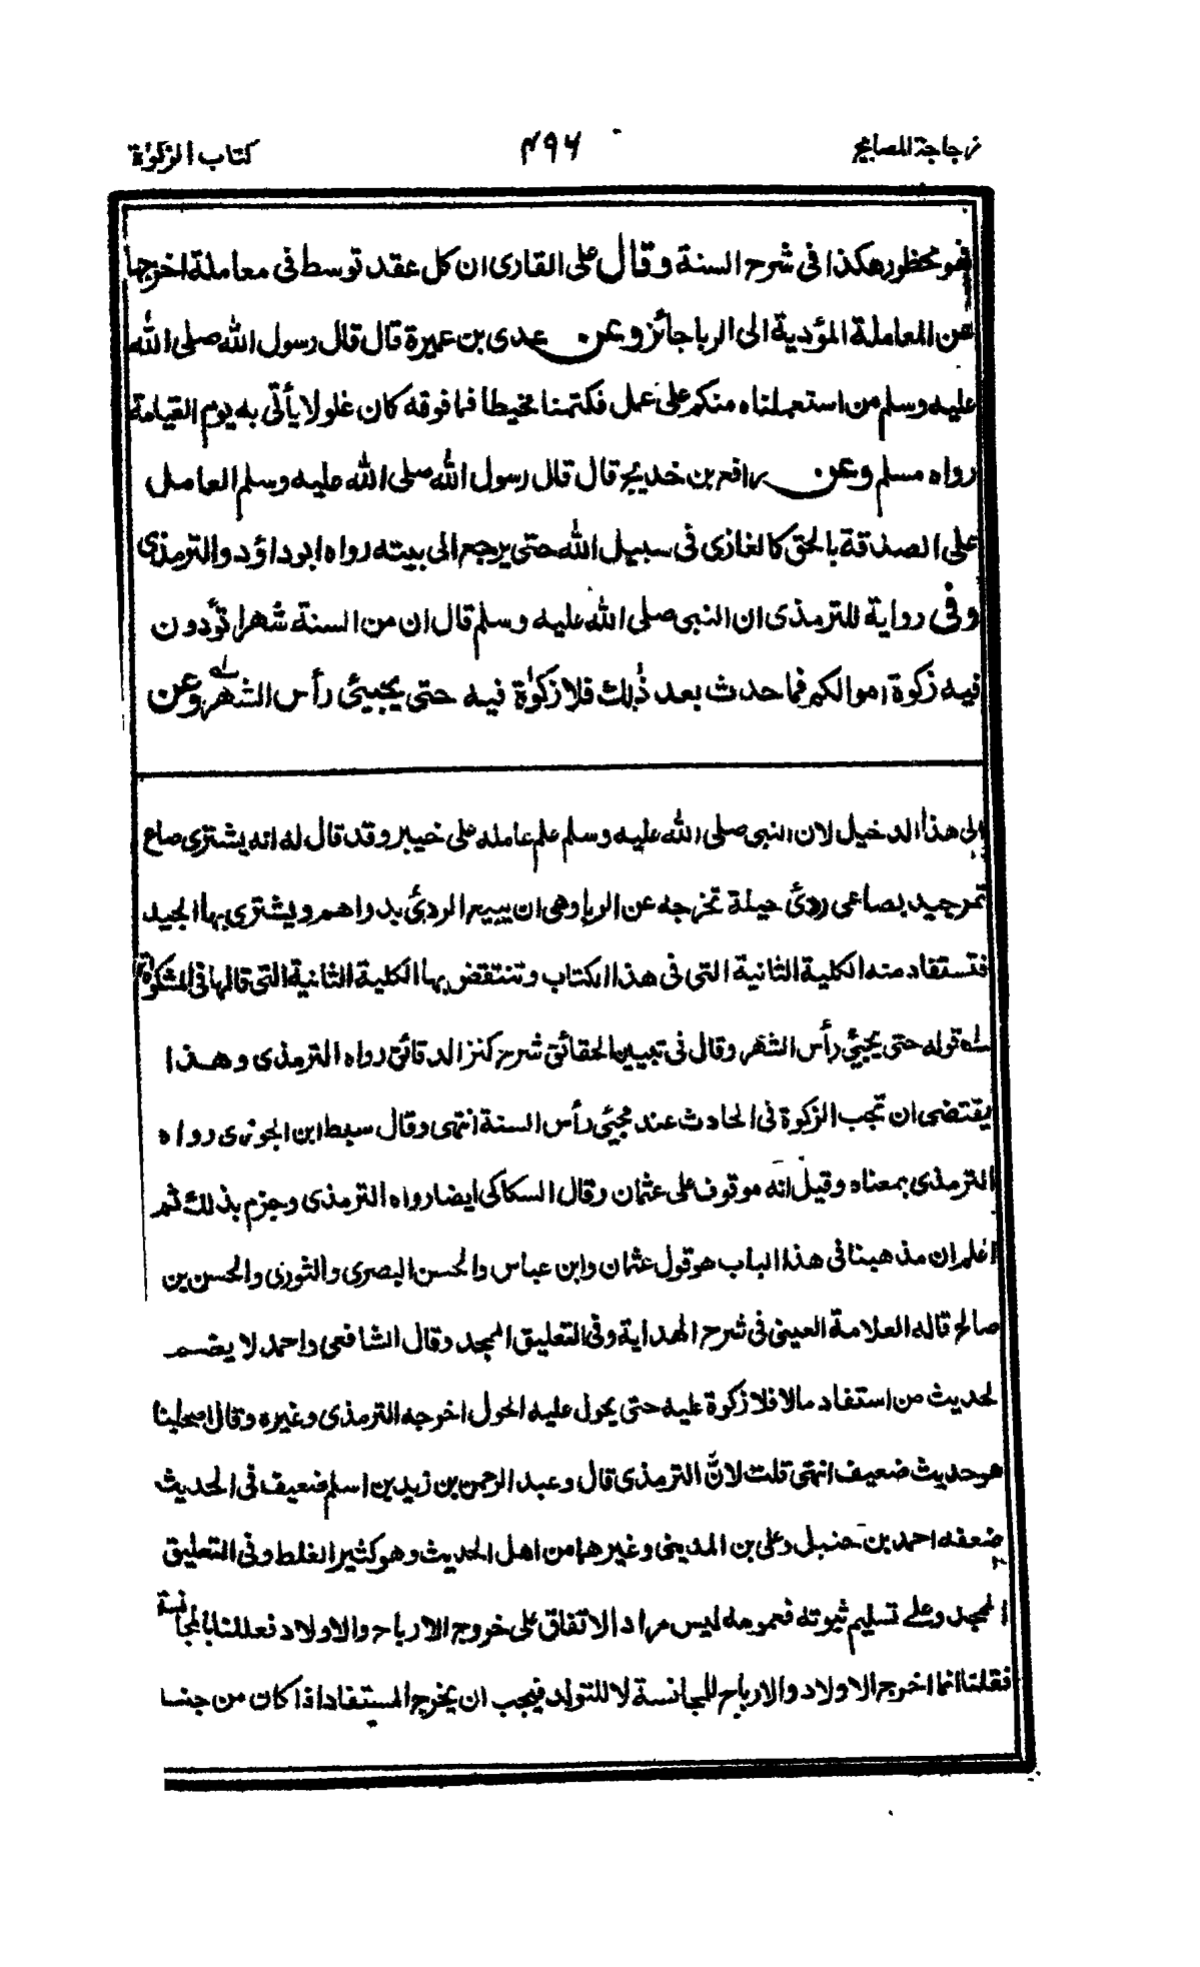 زجاجة المصابيح ٤٩٦ كتاب الزكوٰة
فهو محظور هكذا فى شرح السنة وقال على القارى ان كل عقد توسط فى معاملة اخرجها
عن المعاملة المؤدية الى الربا جائز وعن عدى بن عميرة قال قال رسول الله صلى الله
عليه وسلم من استعملناه منكم على عمل فكتمنا مخيطا فما فوقه كان غلولا يأتى به يوم القيامة
رواه مسلم وعن رافع بن خديج قال قال رسول الله صلى الله عليه وسلم العامل
على الصدقة بالحق كالغازى فى سبيل الله حتى يرجع الى بيته رواه ابوداؤد والترمذى
وفى رواية للترمذى ان النبى صلى الله عليه وسلم قال ان من السنة شهرا تؤدون
فيه زكوة اموالكم فما حدث بعد ذٰلك فلا زكوٰة فيه حتى يجيئ رأس الشهر له وعن
الى هذا الدخيل لان النبى صلى الله عليه وسلم علم عامله على خيبر وقد قال له انه يشترى صاع
تمر جيد بصاعى ردئ حيلة تخرجه عن الربا وهى ان يبيع الردئ بدراهم ويشترى بها الجيد
فتستفاد منه الكلية الثانية التى فى هذا الكتاب وتنتقض بها الكلية الثانية التى قالها فى المشكوٰة
له قوله حتى يجيئ رأس الشهر وقال فى تبيين الحقائق شرح كنز الدقائق رواه الترمذى وهذا
يقتضى ان تجب الزكوة فى الحادث عند مجيئ رأس السنة انتهى وقال سبط ابن الجوزى رواه
الترمذى بمعناه وقيل انه موقوف على عثمان وقال السكاكى ايضا رواه الترمذى وجزم بذلك ثم
اعلم ان مذهبنا فى هذا الباب هو قول عثمان وابن عباس والحسن البصرى والثورى والحسن بن
صالح قاله العلامة العينى فى شرح الهداية وفى التعليق الممجد وقال الشافعى واحمد لا يضم
لحديث من استفاد مالا فلا زكوة عليه حتى يحول عليه الحول اخرجه الترمذى وغيره وقال اصحابنا
هو حديث ضعيف انتهى قلت لانّ الترمذى قال وعبد الرحمن بن زيد بن اسلم ضعيف فى الحديث
ضعفه احمد بن حنبل وعلى بن المدينى وغيرهما من اهل الحديث وهو كثير الغلط وفى التعليق
الممجد وعلى تسليم ثبوته فعمومه ليس مرادا لاتفاق على خروج الارباح والاولاد فعللنا بالمجانسة
فقلنا انما اخرج الاولاد والارباح للمجانسة لا للتولد فيجب ان يخرج المستفاد اذا كان من جنسا